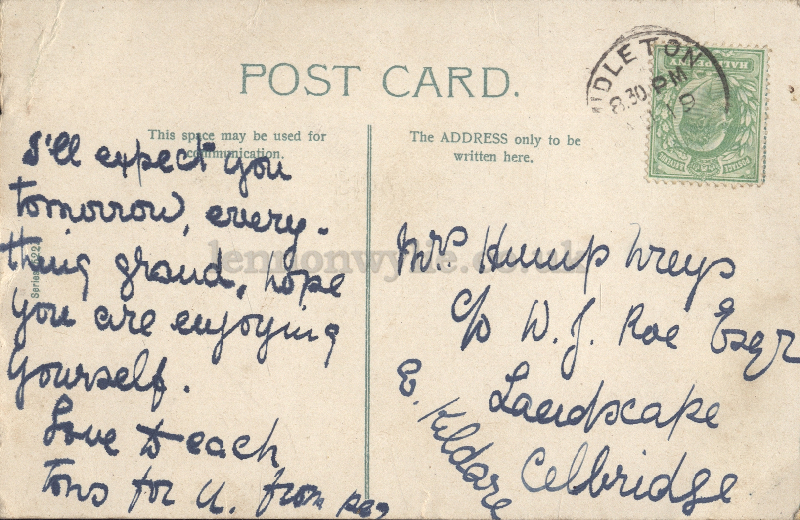 POST CARD.
This space may be used for
communication.
The ADDRESS only to be
written here.
MIDLETON
8.30 PM
HALFPENNY
POSTAGE
I'll expect you
tomorrow, every-
thing grand, hope
you are enjoying
yourself.
Love to each
tons for u. from peg
Mrs Humphreys
c/o W. J. Roe Esqr
Landscape
Celbridge
Co. Kildare
lennonwylie.co.uk